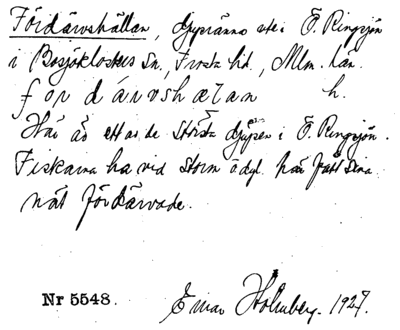 Fördärvshällan, djupränna etc i Ö. Ringsjön
i Bosjöklosters Sn., Frosta hd., Mlm. län.
fördärvshælan h.
Här är ett av de största djupen i Ö. Ringsjön.
Fiskarna ha vid storm ödyl. här fått sina
nät fördärvade.
Nr 5548. Einar Holmberg. 1927.